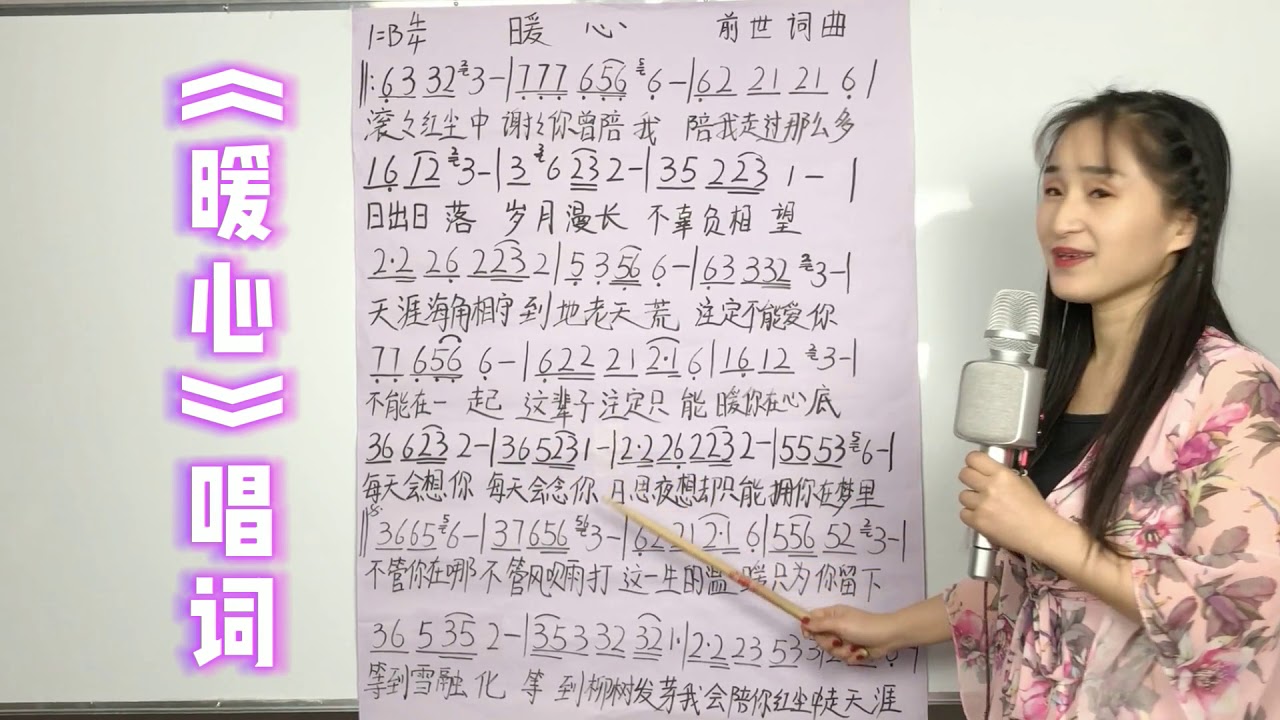 《暖心》唱词
1=B 4/4 暖心 前世词曲
‖: 63 32 3- | 777 656 6- | 62 21 21 6 |
滚々红尘中 谢々你曾陪我 陪我走过那么多
16 12 3- | 3 6 23 2- | 35 223 1- |
日出日落 岁月漫长 不辜负相望
2·2 26 223 2 | 5 3 56 6- | 63 332 3- |
天涯海角相守到地老天荒 注定不能爱你
77 656 6- | 622 21 2·1 6 | 16 12 3- |
不能在一起 这辈子注定只能暖你在心底
36 623 2- | 36 523 1- | 2·2 26 223 2- | 55 53 6- |
每天会想你 每天会念你 日思夜想却只能拥你在梦里
‖ 3665 6- | 37 656 3- | 62 21 2·1 6 | 556 52 3- |
不管你在哪 不管风吹雨打 这一生的温暖只为你留下
36 5 35 2- | 353 32 32 1· | 2·2 23 53
等到雪融化 等到柳树发芽我会陪你红尘中走天涯